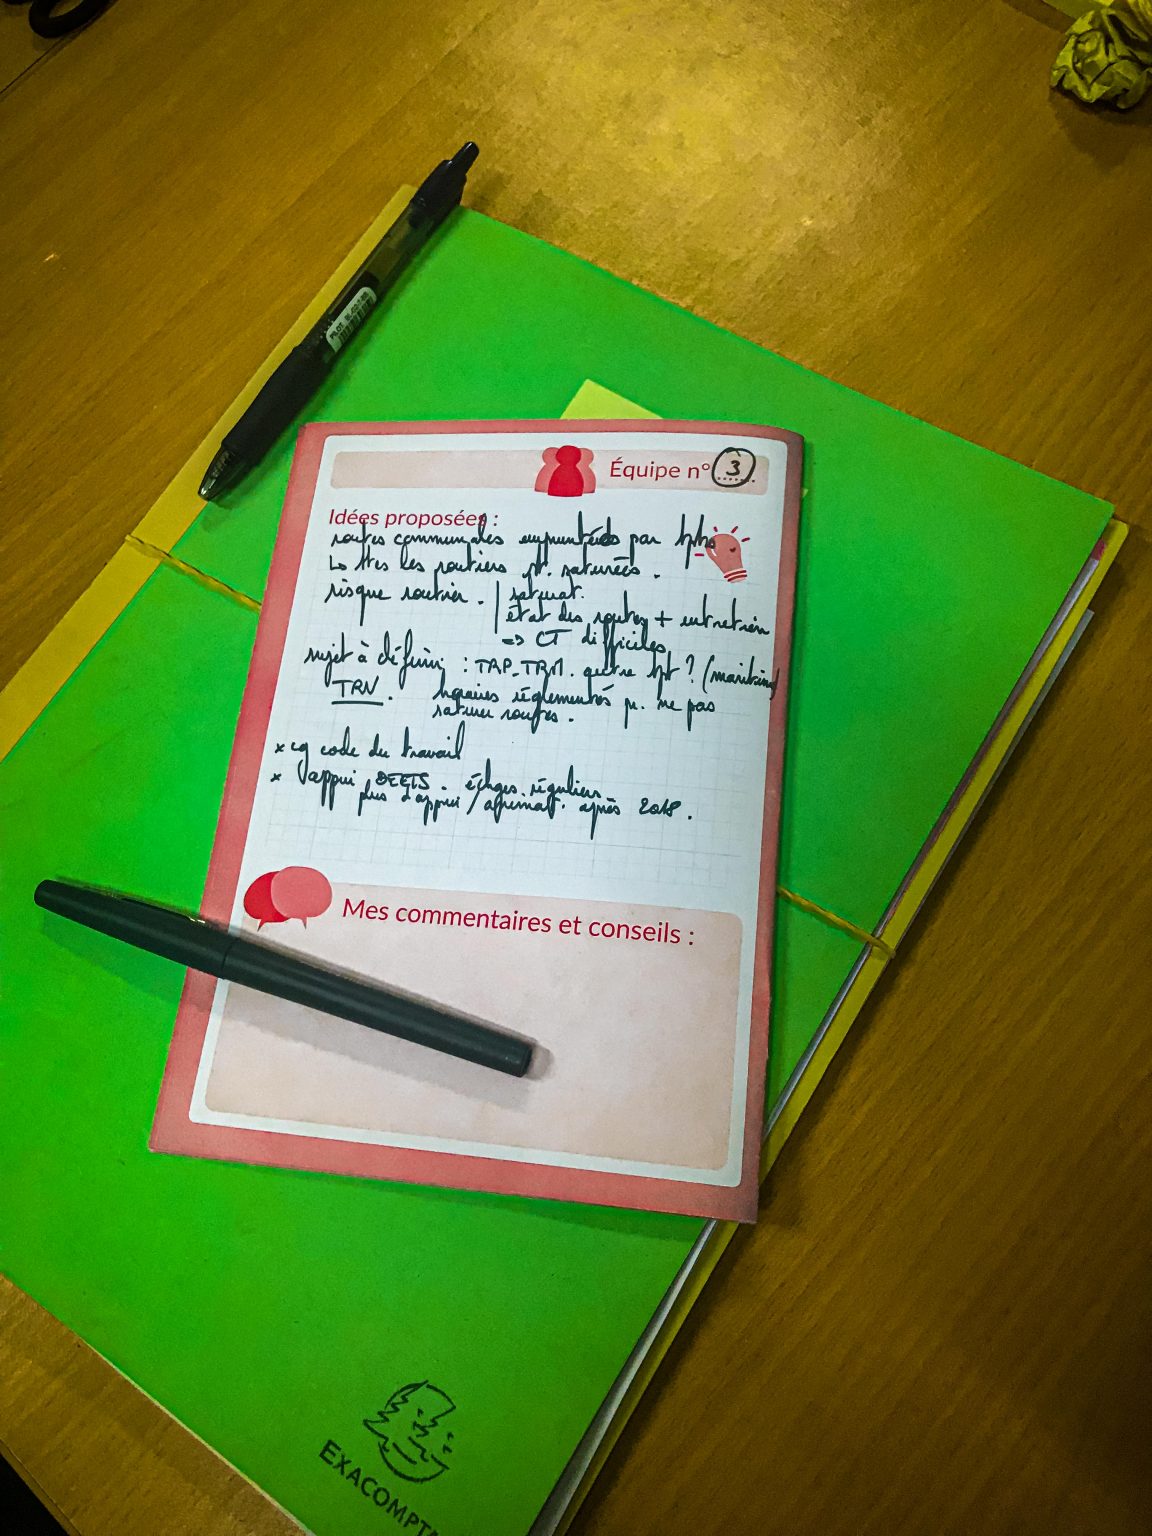 Équipe n° 3
Idées proposées :
routes communales empruntées par
Ls ttes les routiers st. saturées.
risque routier. saturat.
état des routes + entretien
=> CT difficiles
sujet à définir : TRP_TRM. quttre tpt ? (maritime)
TRV. horaires réglementés pr. ne pas
saturer routes.
x cg code du travail
x appui DEETS. échges. réguliers
plus d'appui / après 2018.
Mes commentaires et conseils :
PILOT
EXACOMPTA